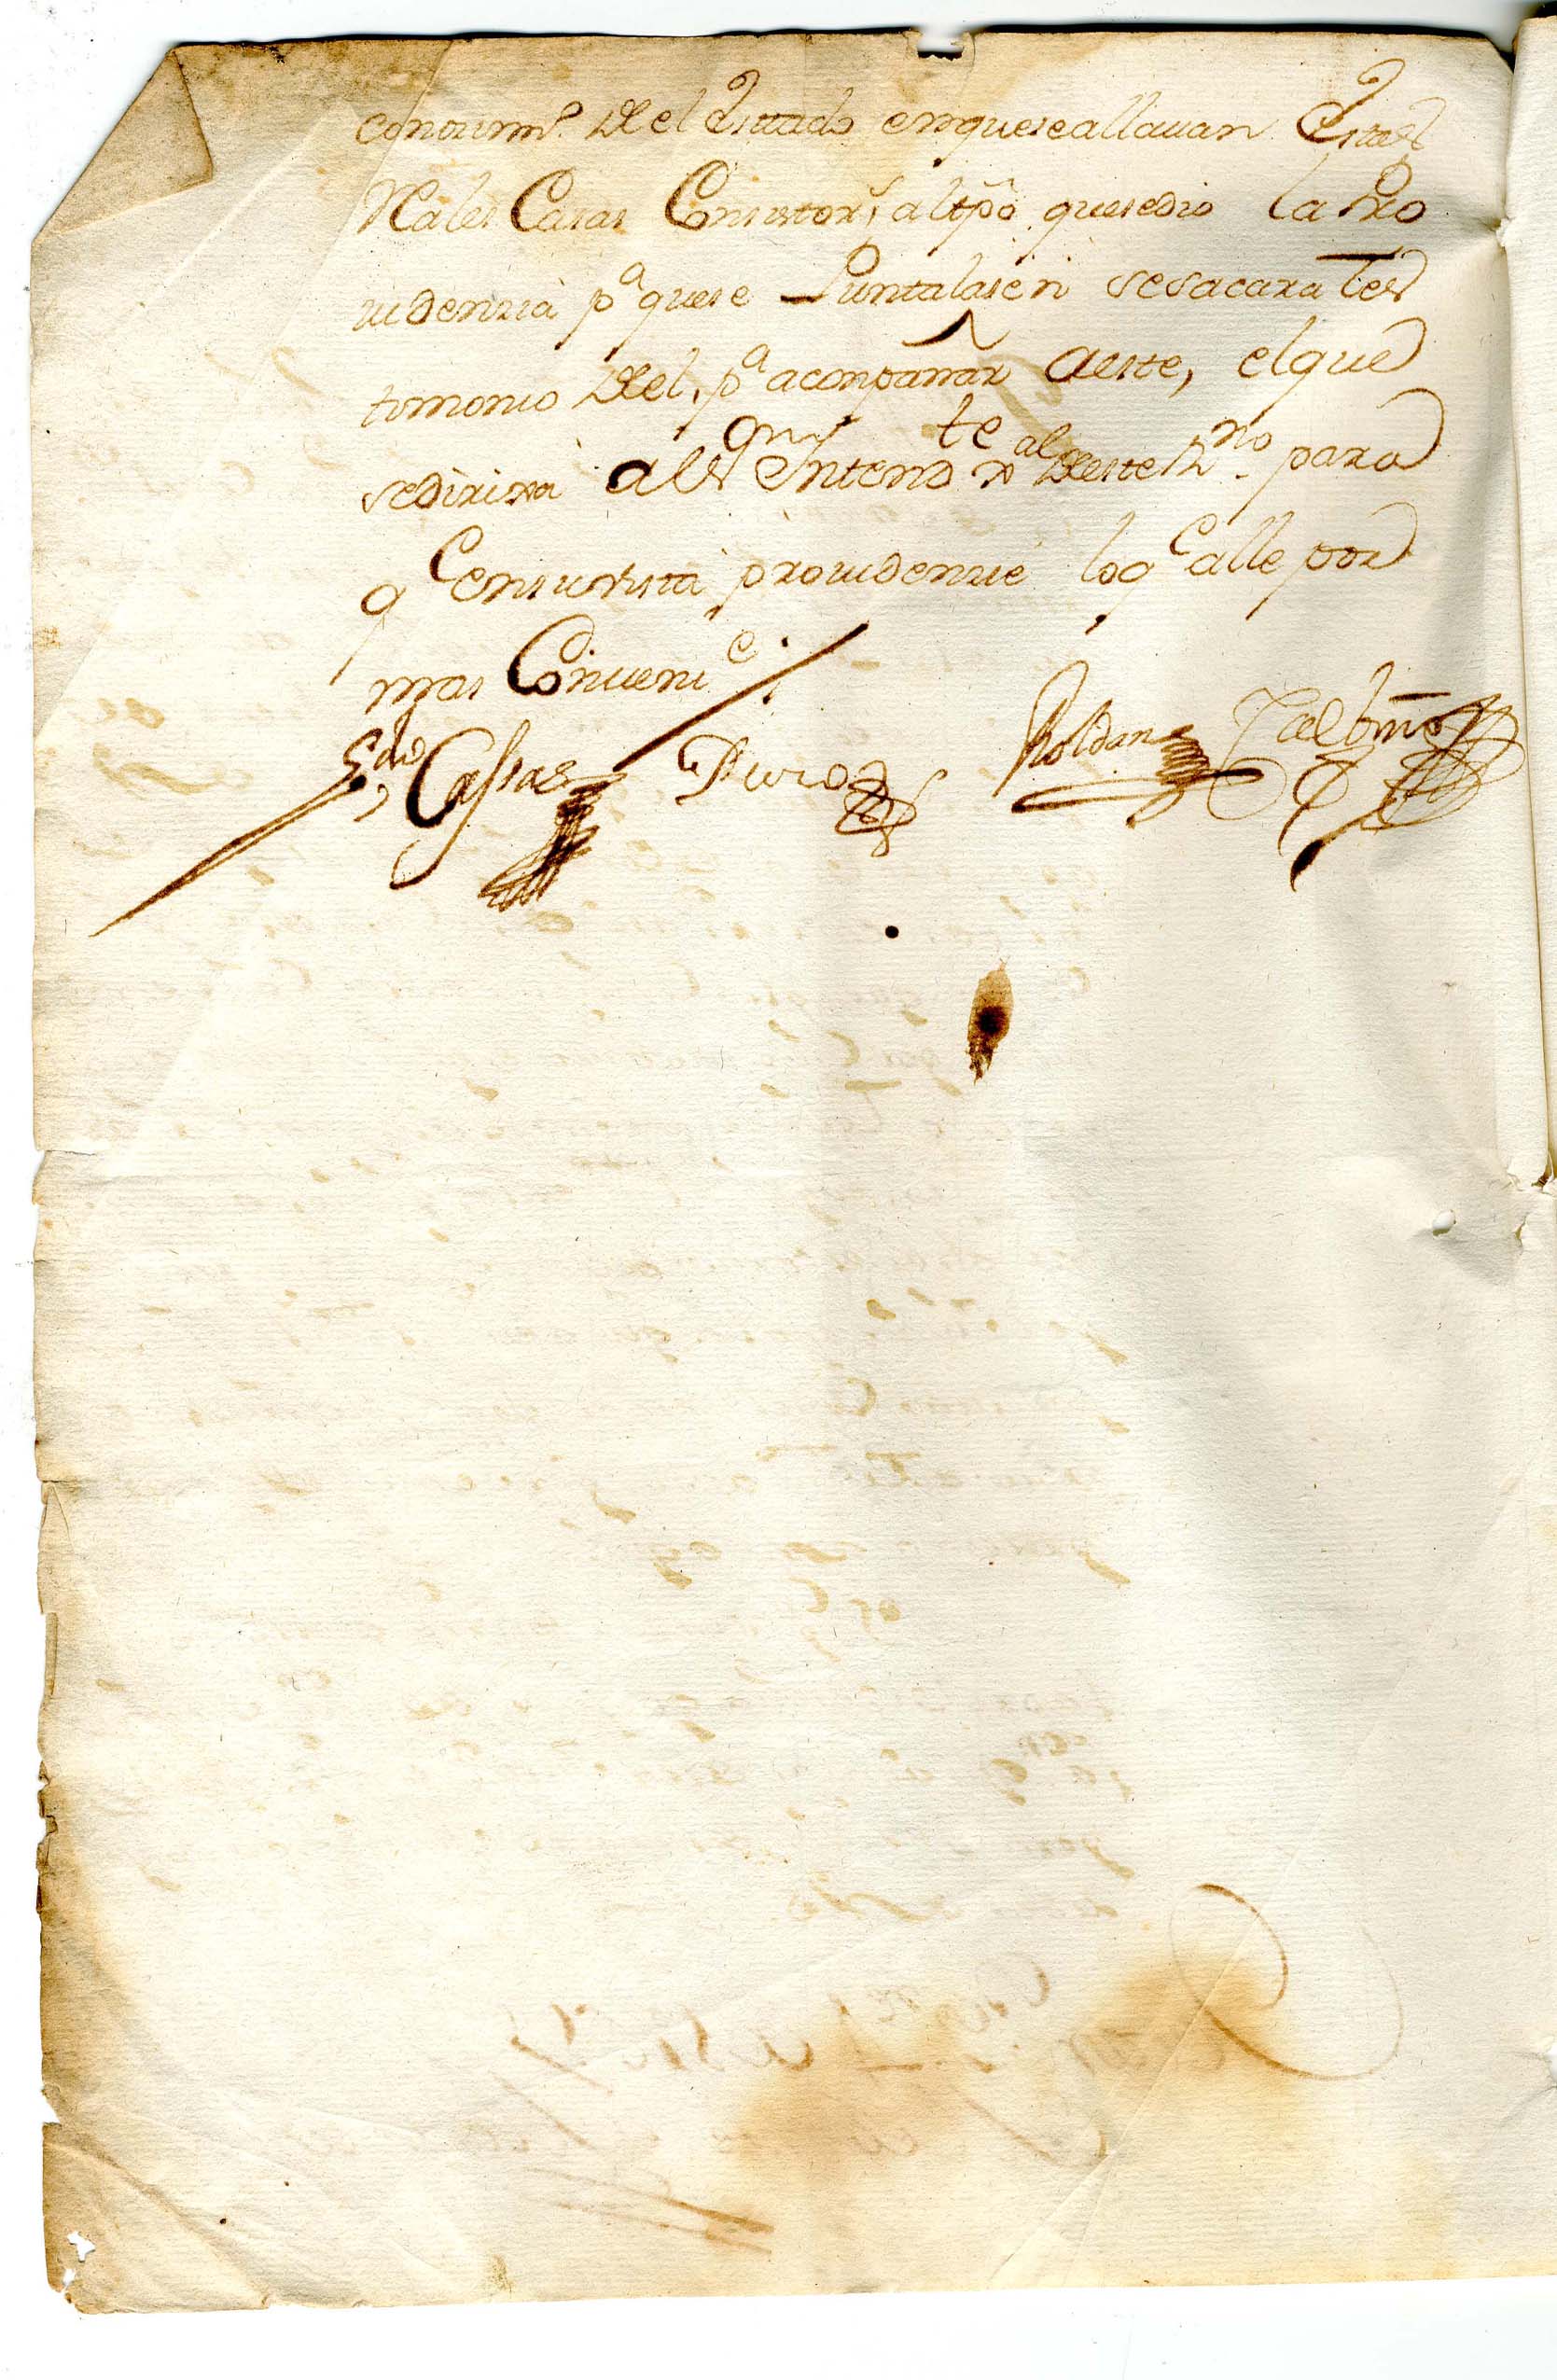 consum.º del estado enquese allauan Estas
Rales Casas Consistor.s, altpô quesedio la Pro
uidenzia p.a quese Puntalasen sesacara tes
timonio del, p.a aconpañar aeste, elque
sedirixa al s.or Yntend.te Gral deste R.no para
q.e ensuvista prouidenzie loq.e alle por
mas Conueni.e
Cassas Duro Roldan